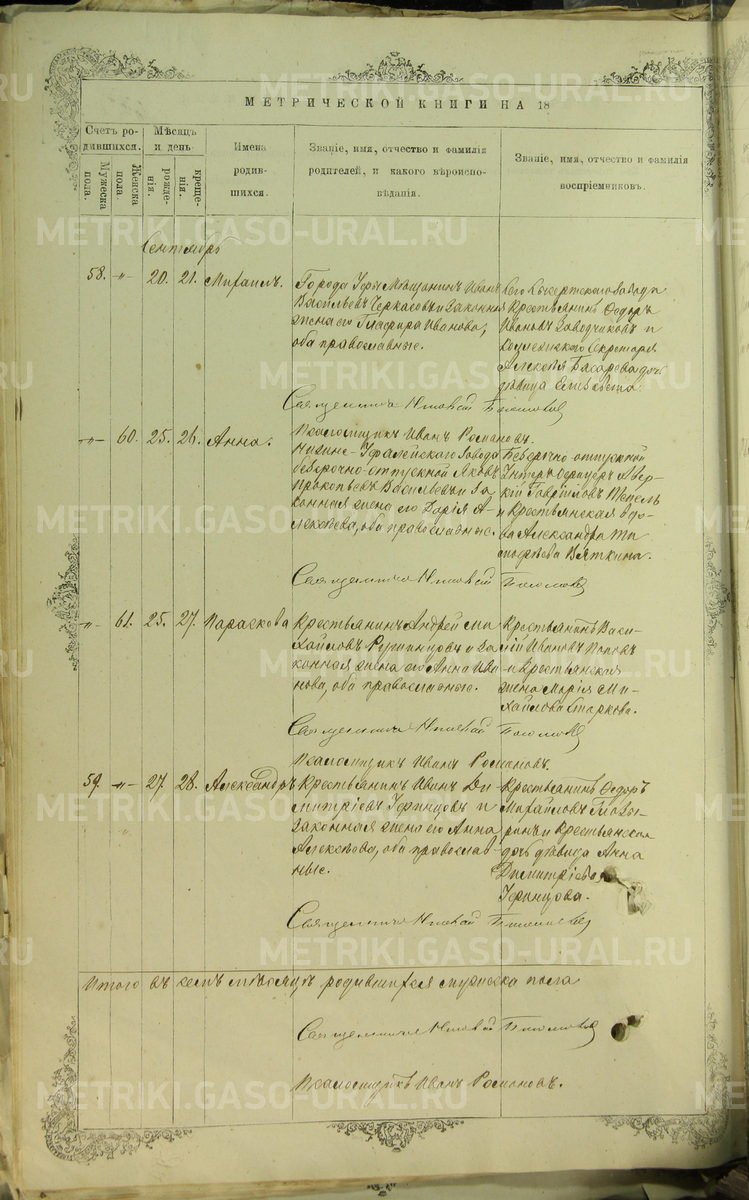 МЕТРИЧЕСКОЙ КНИГИ НА 18
Счетъ родившихся.
Мужеска пола.
Женска пола.
Мѣсяцъ и день
рожденія.
крещенія.
Имена родившихся.
Званіе, имя, отчество и фамилія родителей, и какого вѣроисповѣданія.
Званіе, имя, отчество и фамилія воспріемниковъ.
Сентябрь
58. -„- 20. 21. Михаилъ.
Города Уфы Мѣщанинъ Иванъ
Васильевъ Черкасовъ и законная
жена его Глафира Иванова,
оба православные.
Сысертскаго завода
Крестьянинъ Ѳедоръ
Ивановъ Заводчиковъ и
Секретаря
Алексѣя дочь
дѣвица Елисавета.
Священникъ Николай
Псаломщикъ Иванъ Романовъ.
-„- 60. 25. 26. Анна.
Нижне-Уфалейскаго завода
безсрочно-отпускной Яковъ
Прокопьевъ Васильевъ и за-
конная жена его Дарія А-
лексѣева, оба православные.
Безсрочно-отпускной
Унтеръ-Офицеръ Авер-
кій Гавриловъ
и крестьянская вдо-
ва Александра Ти-
моѳеева Вяткина.
Священникъ Николай
-„- 61. 25. 27. Параскова
Крестьянинъ Андрей Ми-
хайловъ и за-
конная жена его Анна Ива-
нова, оба православные.
Крестьянинъ Васи-
лій Ивановъ Поповъ
и крестьянская
жена Марія Ми-
хайлова Старкова.
Священникъ Николай
Псаломщикъ Иванъ Романовъ.
59. -„- 27. 28. Александръ
Крестьянинъ Иванъ Ди-
митріевъ Уфинцовъ и
законная жена его Анна
Алексѣева, оба православ-
ные.
Крестьянинъ Ѳедоръ
Михайловъ Глазы-
ринъ и Крестьянская
дочь дѣвица Анна
Димитріева
Уфинцова.
Священникъ Николай
Итого въ семъ мѣсяцѣ родившихся мужеска пола
Священникъ Николай
Псаломщикъ Иванъ Романовъ.
METRIKI.GASO-URAL.RU